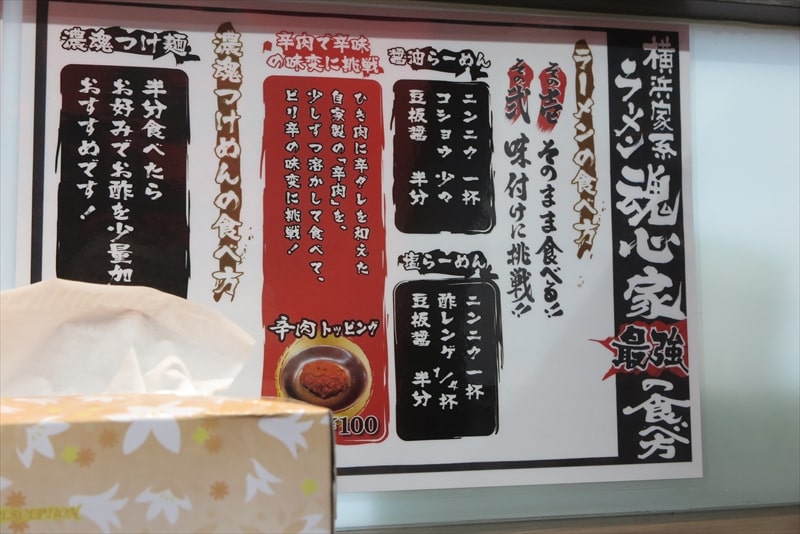 横浜家系
ラーメン 魂心家
最強の食べ方
ラーメンの食べ方
その壱 そのまま食べる!!
その弐 味付けに挑戦!!
醤油らーめん
ニンニク 一杯
コショウ 少々
豆板醤 半分
塩らーめん
ニンニク 一杯
酢レンゲ 1/4杯
豆板醤 半分
辛肉で辛味
の味変に挑戦
ひき肉に辛ダレを和えた
自家製の「辛肉」を、
少しずつ溶かして食べて、
ピリ辛の味変に挑戦!
辛肉トッピング
¥100
濃魂つけめんの食べ方
濃魂つけ麺
半分食べたら
お好みでお酢を少量加
おすすめです!